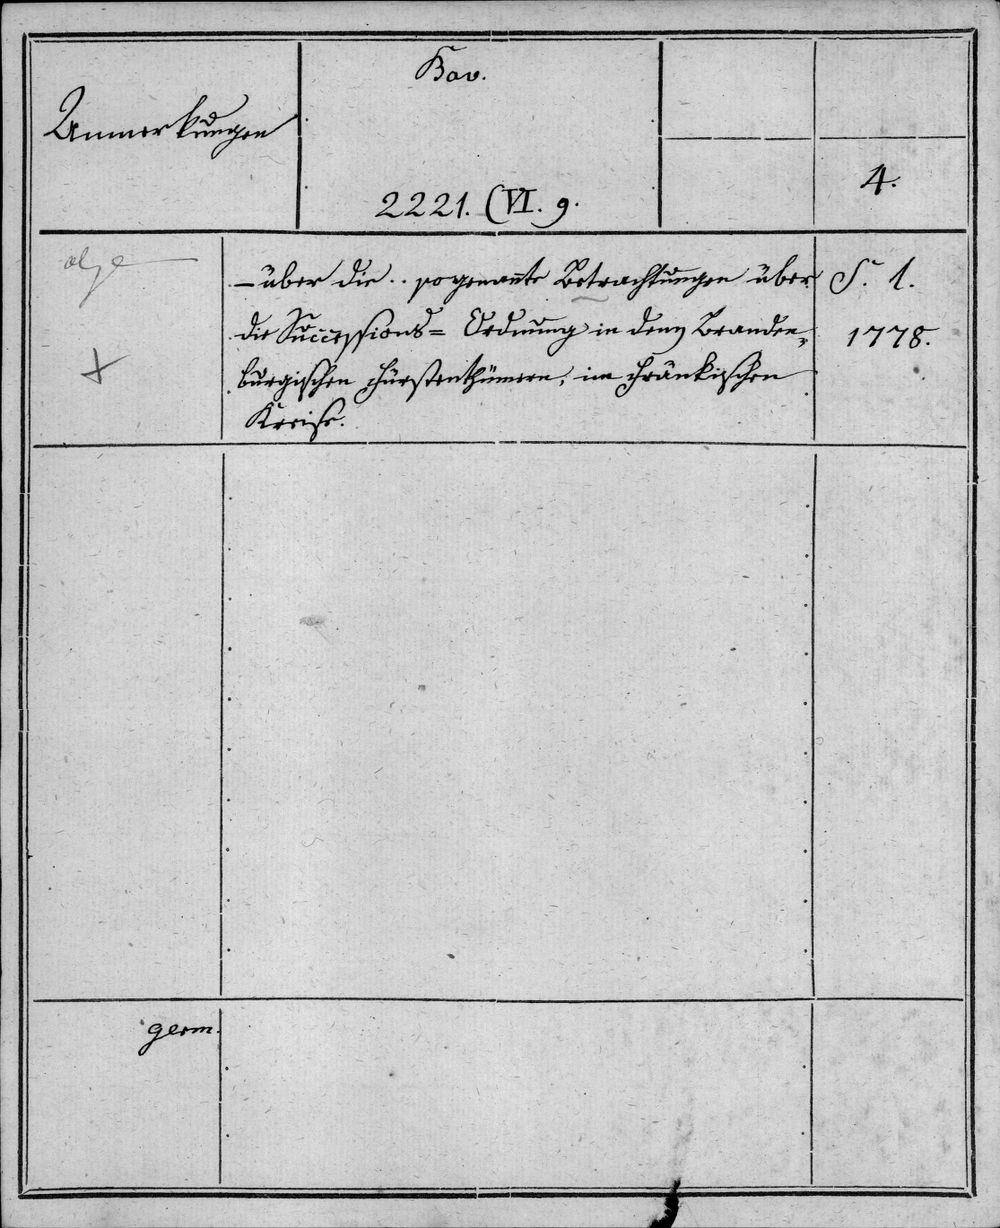 Bav.
Anmerkungen
4.
2221. (VI. 9.
– über die .. sogenan̄te Betrachtungen über
die Successions= Ordnung in deny Branden„
burgischen Fürstenthümern, im Fränkischen
Kreise.
S. l.
1778.
germ.